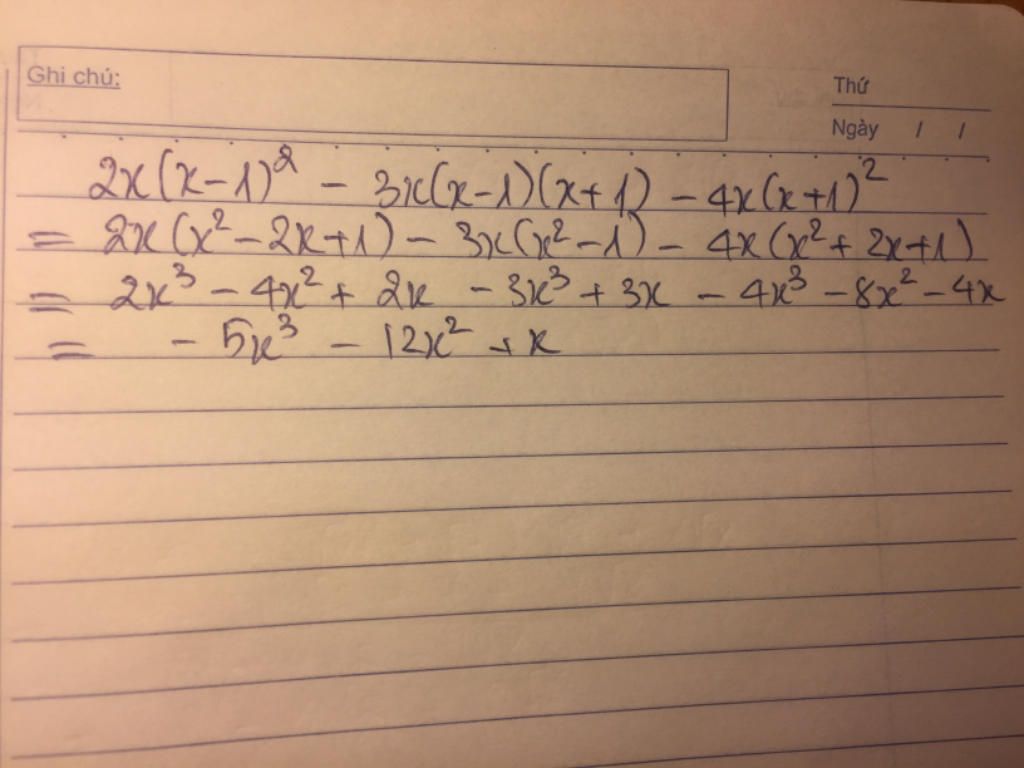 Ghi chú:
Thứ
Ngày / /
2x(x-1)² - 3x(x-1)(x+1) - 4x(x+1)²
= 2x(x² - 2x+1) - 3x(x²-1) - 4x(x²+ 2x+1)
= 2x³ - 4x² + 2x - 3x³ + 3x - 4x³ - 8x² - 4x
= - 5x³ - 12x² + x